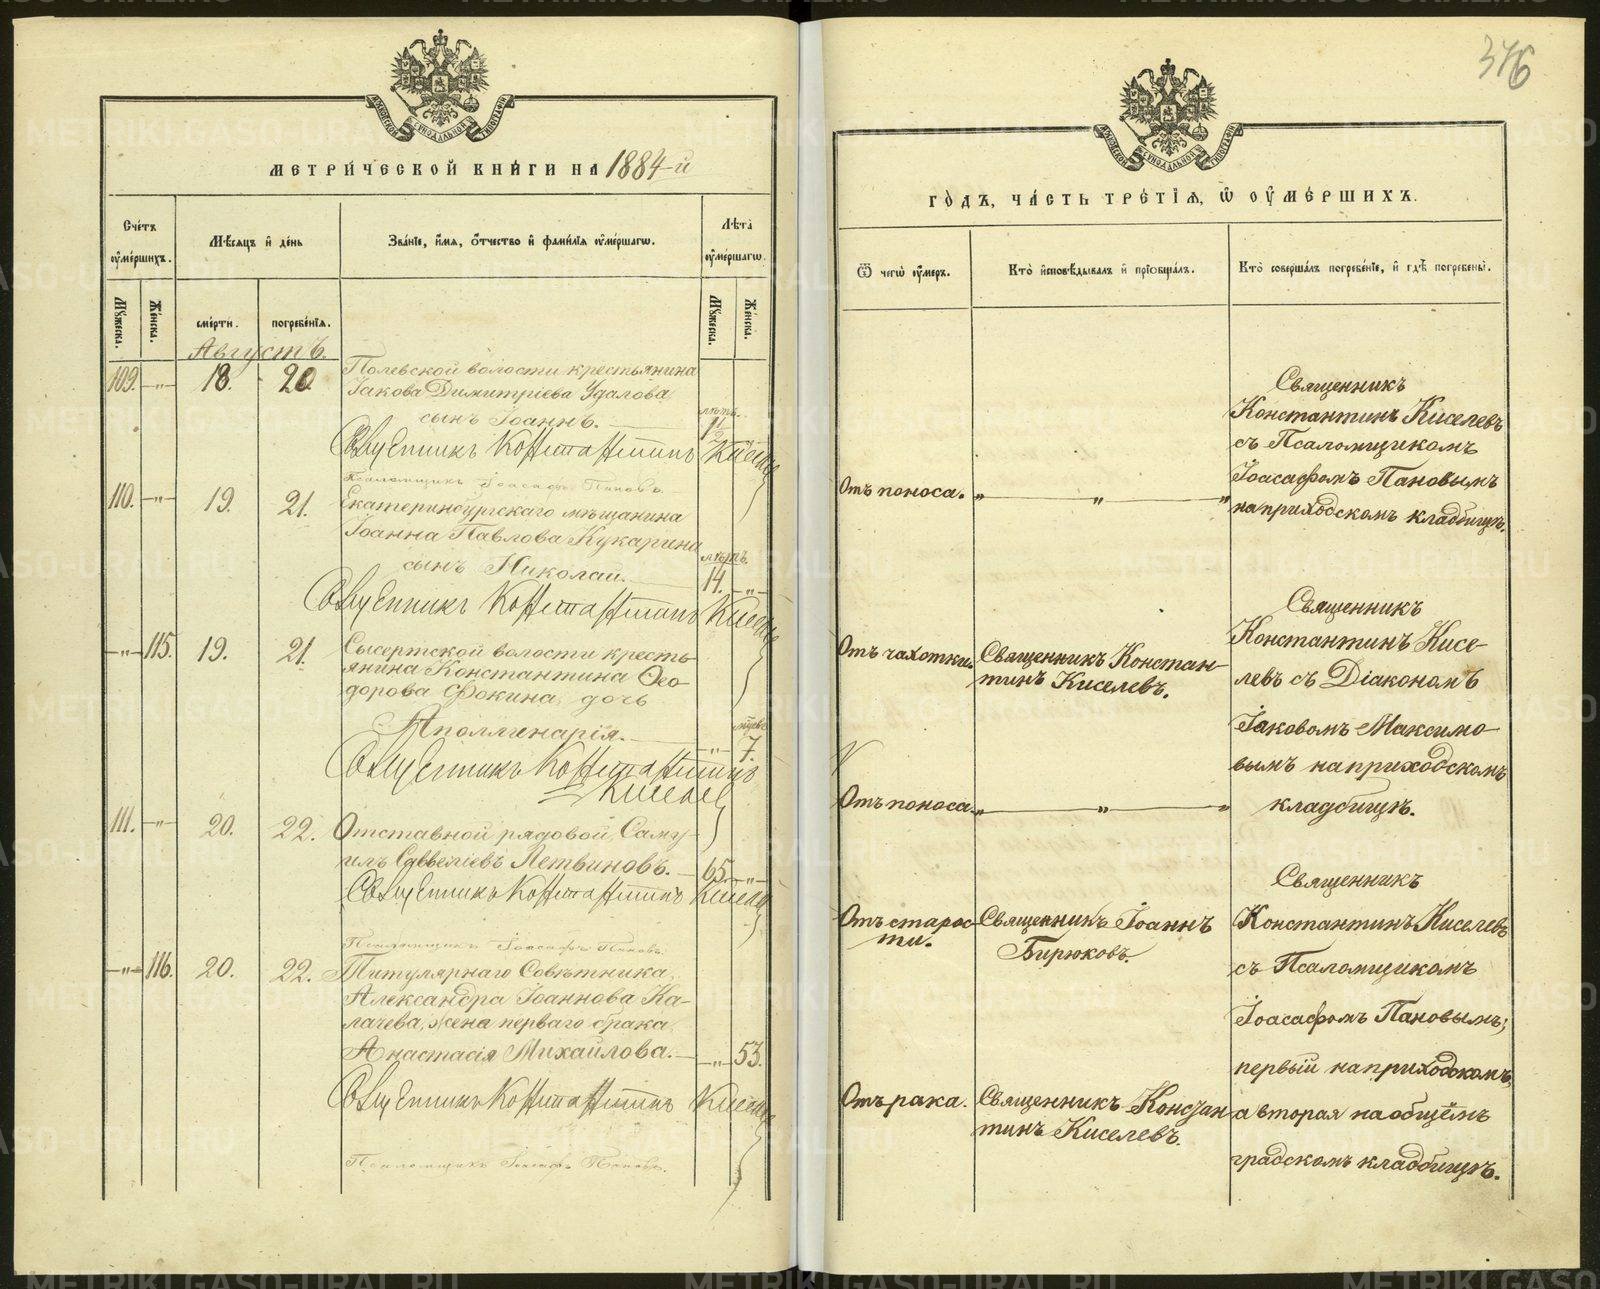 МЕТРИЧЕСКОЙ КНИГИ НА 1884-й
Счетъ оумершихъ.
Мѣсяцъ и день
Званіе, имя, отчество и фамилія оумершагѡ.
Лѣта оумершагѡ.
Мужеска.
Женска.
смерти.
погребенія.
Мужеска.
Женска.
Августъ.
109. „ 18. 20. Полевской волости крестьянина
Іакова Димитріева Удалова
сынъ Іоаннъ. лѣтъ 1½
Священникъ Константинъ Киселевъ
Псаломщикъ Іоасафъ Пановъ
110. „ 19. 21. Екатеринбургскаго мѣщанина
Іоанна Павлова Кукарина
сынъ Николай. лѣтъ. 14. „
Священникъ Константинъ Киселевъ
„ 115. 19. 21. Сысертской волости кресть-
янина Константина Ѳео-
дорова Фокина, дочь
Аполлинарія. „ 7.
Священникъ Константинъ
Киселевъ
111. „ 20. 22. Отставной рядовой, Саму-
илъ Летвиновъ. 65. „
Священникъ Константинъ Киселевъ
Псаломщикъ Іоасафъ Пановъ.
„ 116. 20. 22. Титулярнаго Совѣтника,
Александра Іоаннова Ка-
лачева, жена перваго брака,
Анастасія Михайлова. „ 53.
Священникъ Константинъ Киселевъ
Псаломщикъ Іоасафъ Пановъ.
376
ГОДЪ, ЧАСТЬ ТРЕТІЯ, Ѡ ОУМЕРШИХЪ.
Ѿ чегѡ оумеръ.
Кто исповѣдывалъ и пріобщалъ.
Кто совершалъ погребеніе, и гдѣ погребены.
Священникъ
Константинъ Киселевъ
съ Псаломщикомъ
Отъ поноса. „ „ „ Іоасафомъ Пановымъ
на приходскомъ кладбищѣ.
Священникъ
Константинъ Кисе-
Отъ чахотки. Священникъ Констан- левъ съ Діакономъ
тинъ Киселевъ.
Іаковомъ Максимо-
вымъ на приходскомъ
Отъ поноса. „ „ „ кладбищѣ.
Священникъ
Отъ старос- Священникъ Іоаннъ Константинъ Киселевъ
ти. Бирюковъ.
съ Псаломщикомъ
Іоасафомъ Пановымъ;
первый на приходскомъ,
Отъ рака. Священникъ Констан- а вторая на общемъ
тинъ Киселевъ.
градскомъ кладбищѣ.
METRIKI.GASO-URAL.RU